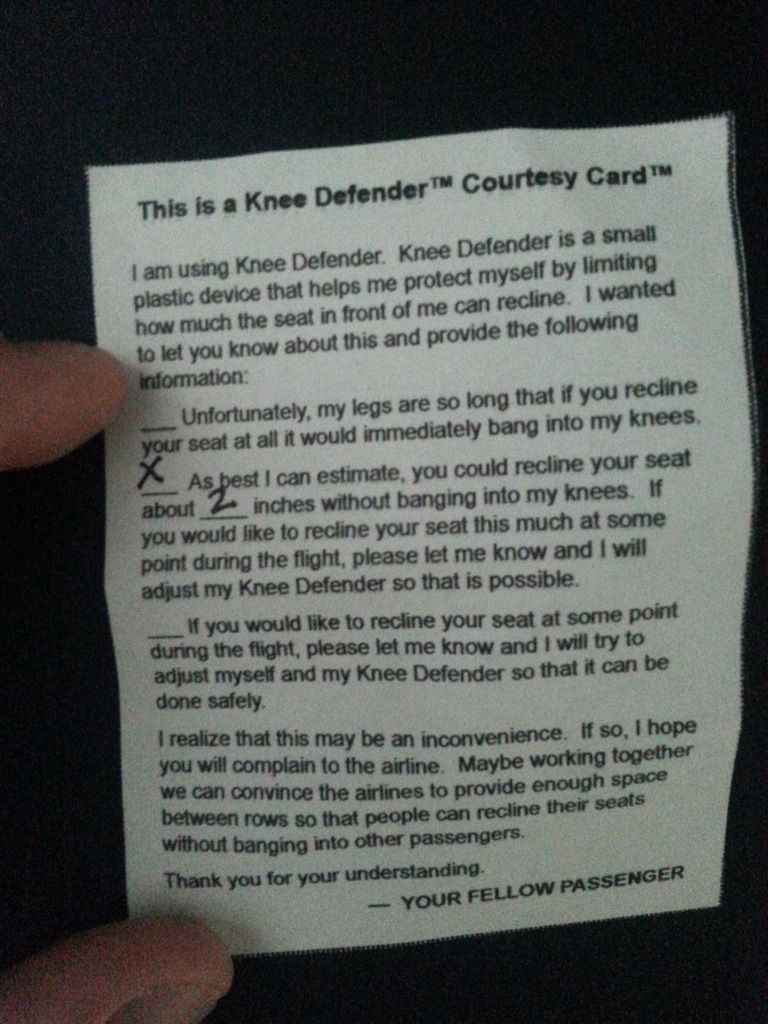 This is a Knee Defender™ Courtesy Card™
I am using Knee Defender. Knee Defender is a small
plastic device that helps me protect myself by limiting
how much the seat in front of me can recline. I wanted
to let you know about this and provide the following
information:
___ Unfortunately, my legs are so long that if you recline
your seat at all it would immediately bang into my knees.
X As best I can estimate, you could recline your seat
about 2 inches without banging into my knees. If
you would like to recline your seat this much at some
point during the flight, please let me know and I will
adjust my Knee Defender so that is possible.
___ If you would like to recline your seat at some point
during the flight, please let me know and I will try to
adjust myself and my Knee Defender so that it can be
done safely.
I realize that this may be an inconvenience. If so, I hope
you will complain to the airline. Maybe working together
we can convince the airlines to provide enough space
between rows so that people can recline their seats
without banging into other passengers.
Thank you for your understanding.
— YOUR FELLOW PASSENGER